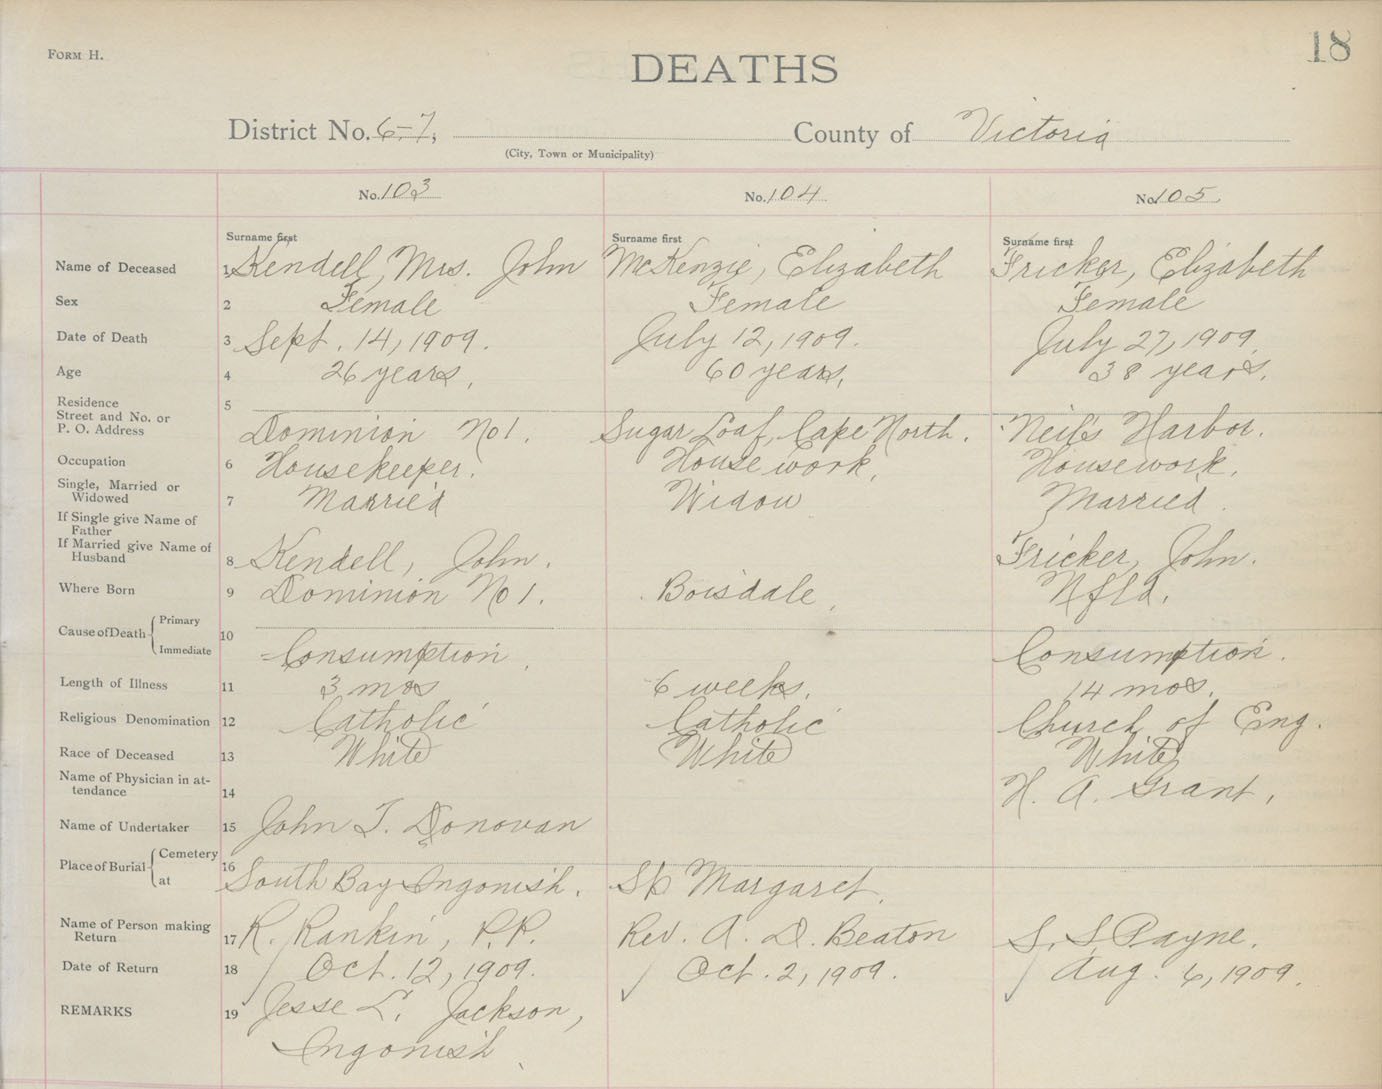 18
FORM H.
DEATHS
District No. 6-7, County of Victoria
(City, Town or Municipality)
No. 103 No. 104 No. 105.
Surname first Surname first Surname first
Name of Deceased 1 Kendell, Mrs. John McKenzie, Elizabeth Fricker, Elizabeth
Sex 2 Female Female Female
Date of Death 3 Sept. 14, 1909. July 12, 1909. July 27, 1909.
Age 4 26 years, 60 years, 38 years,
Residence 5
Street and No. or
P. O. Address Dominion No 1. Sugar Loaf, Cape North. Neil's Harbor.
Occupation 6 Housekeeper. House work, Housework,
Single, Married or
Widowed 7 Married Widow Married.
If Single give Name of
Father
If Married give Name of
Husband 8 Kendell, John. Fricker, John.
Where Born 9 Dominion No 1. Boisdale, Nfld,
Cause of Death Primary 10
Immediate Consumption, Consumption.
Length of Illness 11 3 mos 6 weeks, 14 mos.
Religious Denomination 12 Catholic Catholic Church of Eng.
Race of Deceased 13 White White White
Name of Physician in at-
tendance 14 H. A. Grant,
Name of Undertaker 15 John T. Donovan
Place of Burial Cemetery 16
at South Bay Ingonish. St Margaret.
Name of Person making
Return 17 R. Rankin, P.P. Rev. A. D. Beaton S. S Payne.
Date of Return 18 Oct. 12, 1909. Oct. 2, 1909. Aug. 6, 1909.
REMARKS 19 Jesse L. Jackson,
Ingonish